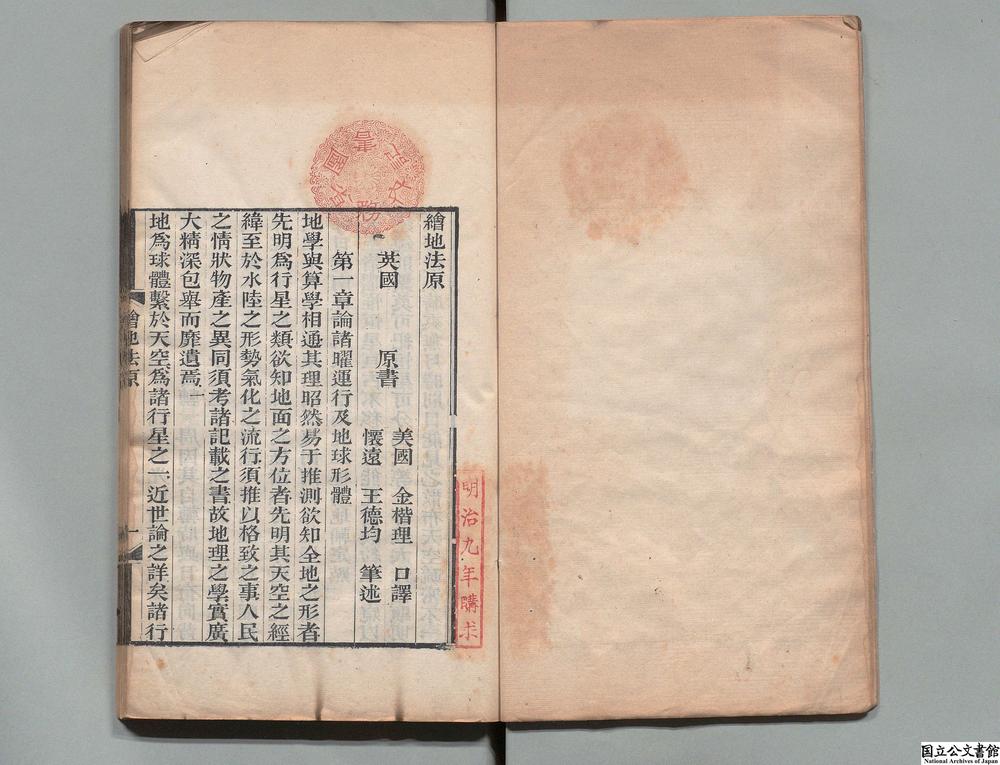 繪地法原
英國　原書
美國　金楷理　口譯
懷遠　王德均　筆述
第一章論諸曜運行及地球形體
地學與算學相通其理昭然易于推測欲知全地之形者
先明爲行星之類欲知地面之方位者先明其天空之經
緯至於水陸之形勢氣化之流行須推以格致之事人民
之情狀物產之異同須考諸記載之書故地理之學實廣
大精深包舉而靡遺焉
地爲球體繫於天空爲諸行星之一近世論之詳矣諸行
繪地法原
一
明治九年購求
国立公文書館
National Archives of Japan